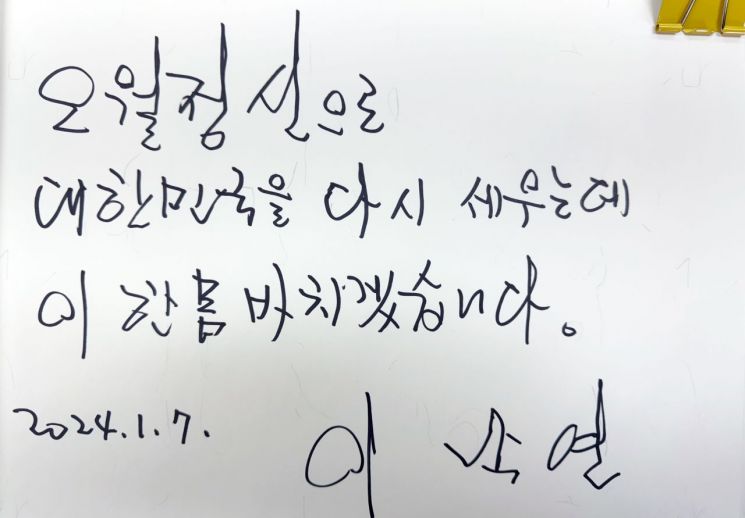 오월정신으로
대한민국을 다시 세우는데
이 한몸 바치겠습니다.
2024.1.7. 이소연